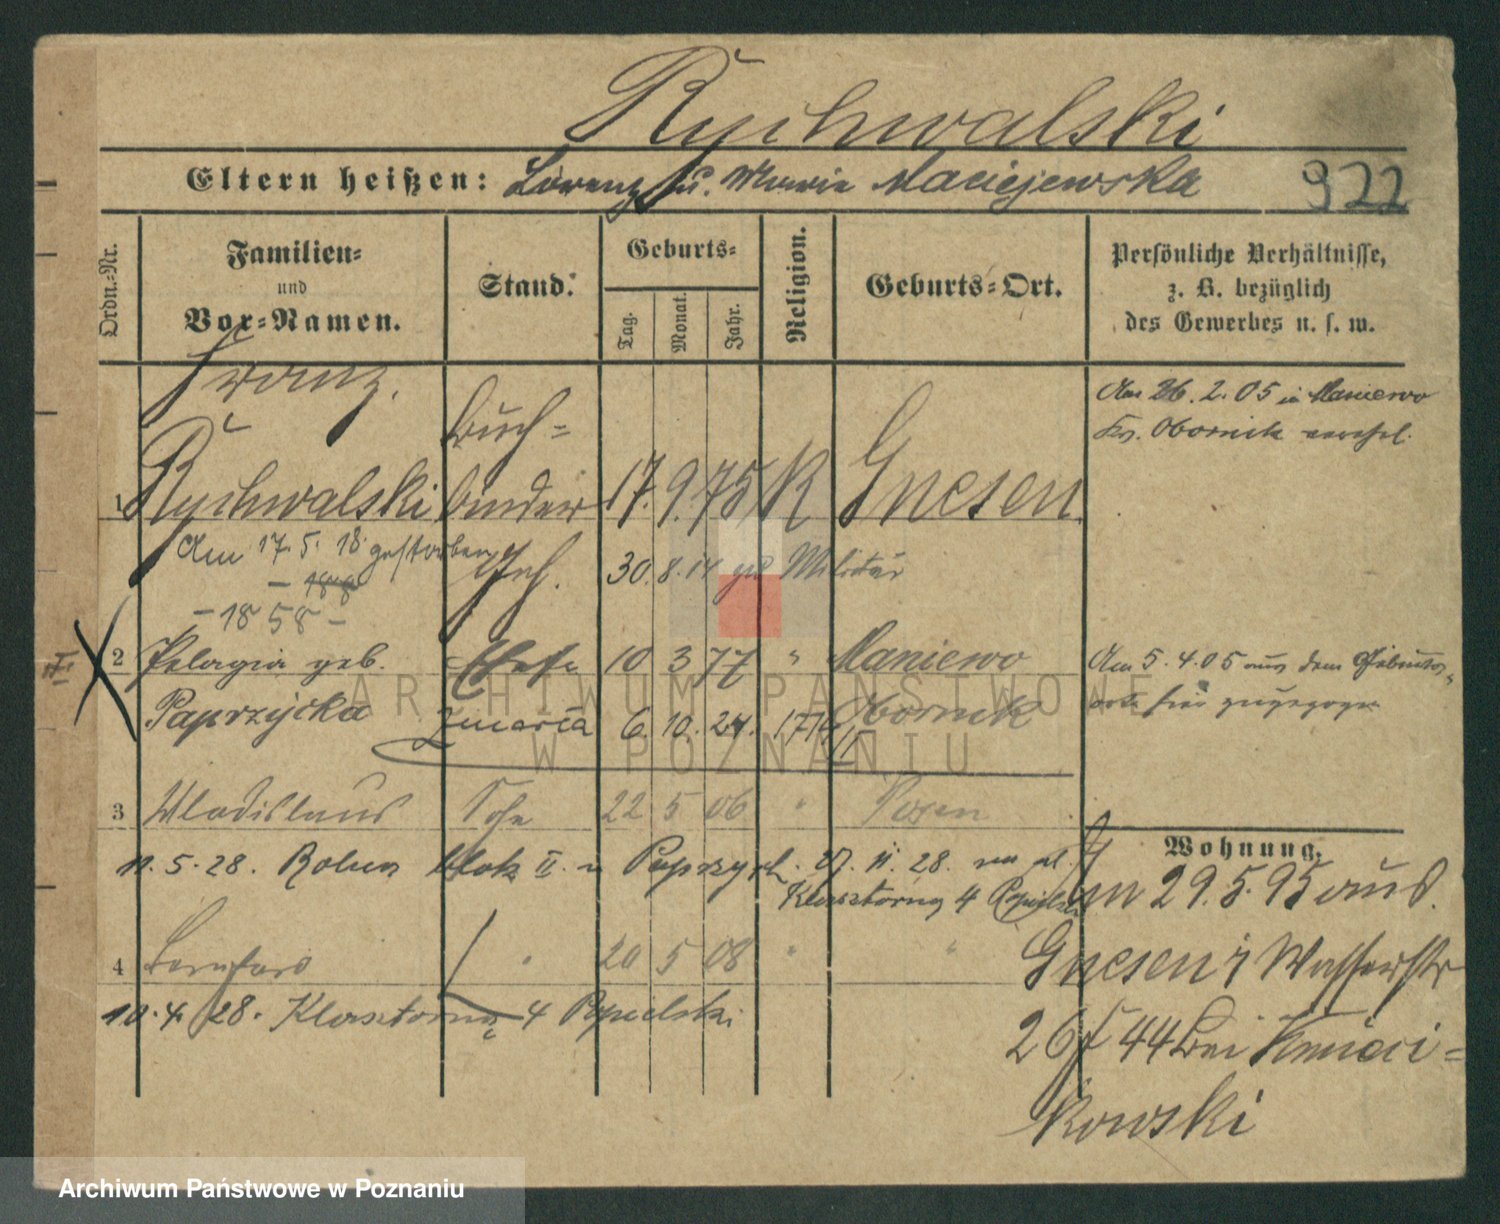 Rychwalski
Eltern heißen: Lorenz u. Marie Maciejewska
922
Ordn.-Nr.
Familien- und Vor-Namen.
Stand.
Geburts-
Tag.
Monat.
Jahr.
Religion.
Geburts-Ort.
Persönliche Verhältnisse,
z. B. bezüglich
des Gewerbes u. s. w.
Franz.
Buch=
Am 26.2.05 in Maniewo
Kr. Obornik verehel.
1 Rychwalski binder 17. 9. 75 K Gnesen
Am 17.5.18 gestorben
30. 8. 14 zu Militär
- 1858 -
2 Pelagia geb. Ehefr 10 3 77 " Maniewo
Am 5.4.05 aus dem Geburts-
orte hier zugezogen
Paprzycka zmarła 6. 10. 24. Obornik
3 Wladislaus Sohn 22 5 06 " Posen
11.5.28. blok II. 27. 11. 28.
Klasztorna 4
Wohnung.
29.5.95 aus
4 Bernhard " 20 5 08 " "
Gnesen Wasserstr
10.4.28. Klasztorna 4 Popielski
26 44 bei
kowski
ARCHIWUM PAŃSTWOWE
W POZNANIU
Archiwum Państwowe w Poznaniu